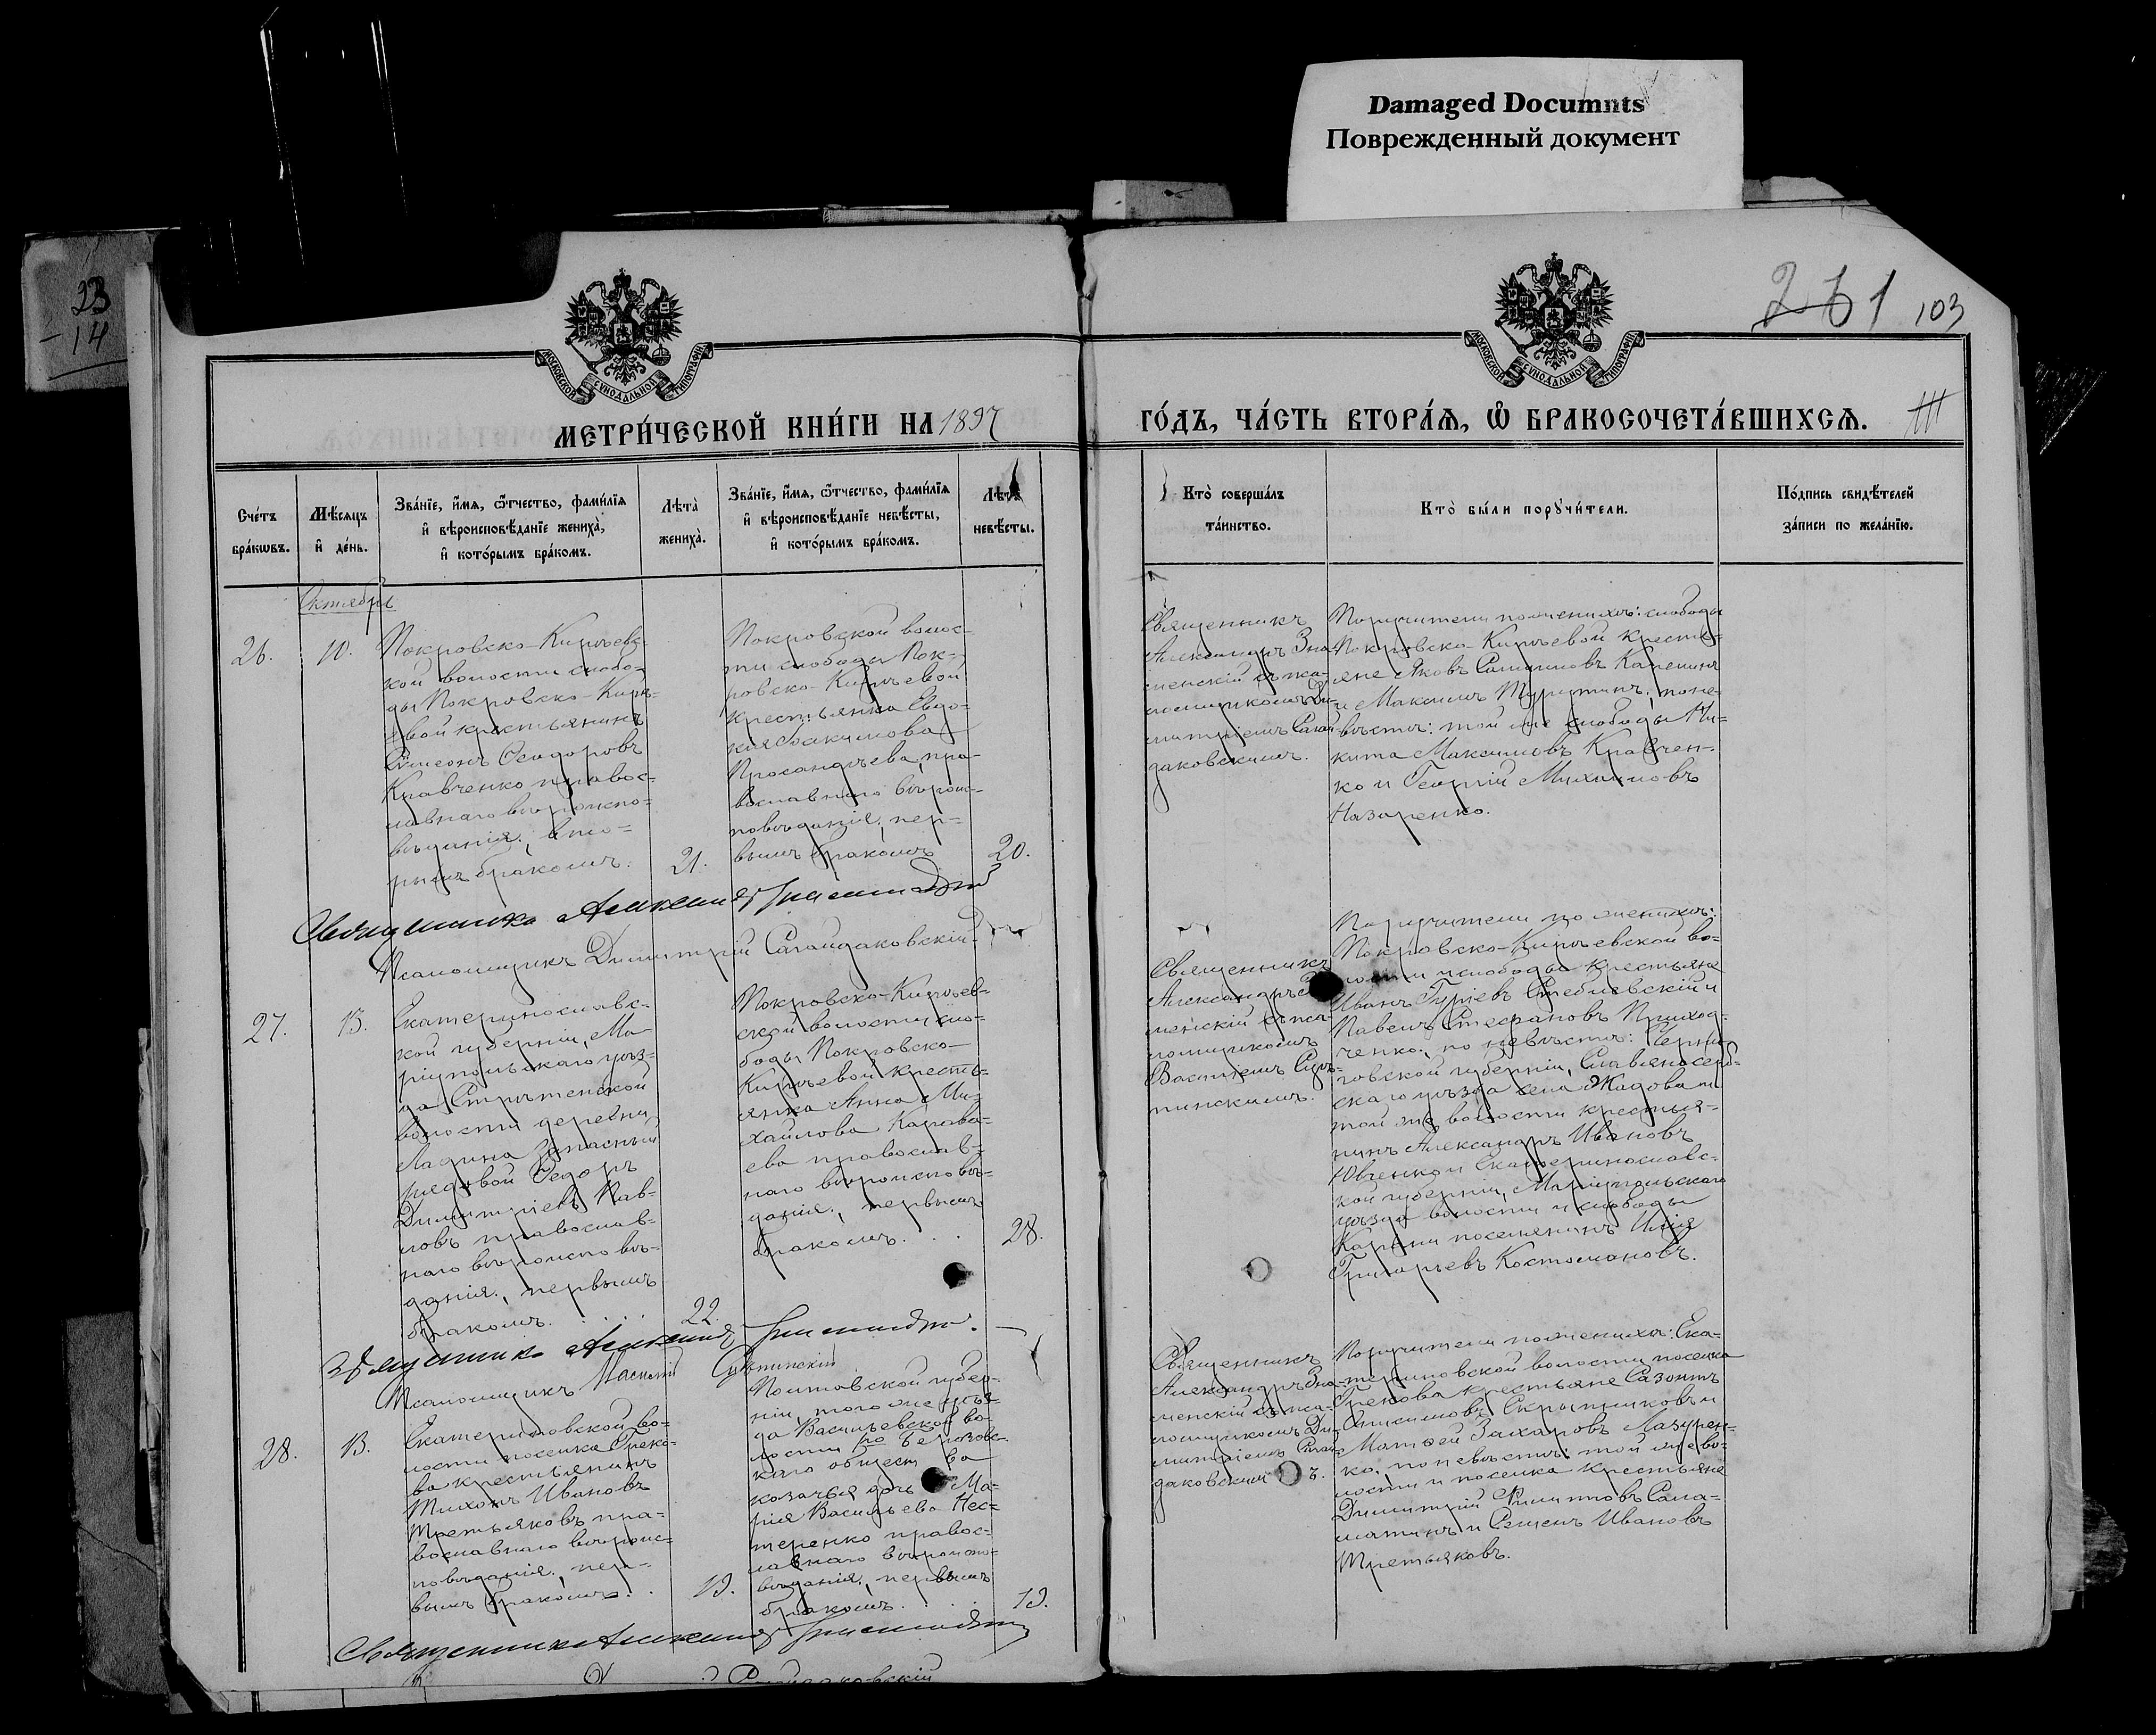 Damaged Documnts
Поврежденный документ
23
- 14
261 103
МОСКОВСКОЙ СУНОДАЛЬНОЙ ТИПОГРАФІИ
МОСКОВСКОЙ СУНОДАЛЬНОЙ ТИПОГРАФІИ
МЕТРИ́ЧЕСКОЙ КНИ́ГИ НА 1897
ГО́ДЪ, ЧА́СТЬ ВТОРА́Ѧ, Ѡ҆ БРАКОСОЧЕТА́ВШИХСѦ.
Сче́тъ
бра́кѡвъ.
Мѣ́сяцъ
и҆ де́нь.
Зва́нїе, и҆́мѧ, ѻ҆́тчество, фами́лїѧ
и҆ вѣроисповѣ́данїе жениха̀,
и҆ кото́рымъ бра́комъ.
Лѣта̀
жениха̀.
Зва́нїе, и҆́мѧ, ѻ҆́тчество, фами́лїѧ
и҆ вѣроисповѣ́данїе невѣ́сты,
и҆ кото́рымъ бра́комъ.
Лѣта̀
невѣ́сты.
Кто̀ соверша́лъ
та́инство.
Кто̀ бы́ли порꙋчи́тели.
По́дпись свидѣ́телей
за́писи по жела́нїю.
Октябрь
26.
10.
Покровско-Кирѣевс-
кой волости слобо-
ды Покровско-Кирѣ-
евой крестьянинъ
Симеонъ Ѳеодоровъ
Кравченко правос-
лавнаго вѣроиспо-
вѣданія, вто-
рымъ бракомъ.
21.
Покровской волос-
ти слободы Пок-
ровско-Кирѣевой
крестьянка Евдо-
кія
православнаго вѣрои-
повѣданія, пер-
вымъ бракомъ
20.
Священникъ
Александръ Зна-
менскій съ пса-
ломщикомъ Ди-
митріемъ Сагай-
даковскимъ.
Поручители по женихѣ: слободы
Покровско Кирѣевой кресть-
яне Яковъ
и Максимъ по не-
вѣстѣ: той же слободы Ни-
кита Максимовъ Кравчен-
ко и Георгій Михаиловъ
Назаренко.
Священникъ Александръ Знаменскій
Псаломщикъ Димитрій Сагайдаковскій
27.
13.
Екатеринославс-
кой губерніи, Ма-
ріупольскаго уѣз-
да Стрѣтенской
волости деревни
запасный
рядовой Ѳедоръ
Димитріевъ Пав-
ловъ православ-
наго вѣроисповѣ-
данія, первымъ
бракомъ. . . .
22.
Покровско-Кирѣев-
ской волости сло-
боды Покровско-
Кирѣевой кресть-
янка Анна Ми-
хайлова Карава-
ева православ-
наго вѣроисповѣ-
данія, первымъ
бракомъ. . .
28.
Священникъ
Александръ
менскій съ пса-
ломщикомъ
Василіемъ
Поручители по женихѣ:
Покровско-Кирѣевской во-
лости и слободы крестьяне
Иванъ Гуріевъ Стеблевскій и
Павелъ Стефановъ Приход-
ченко, по невѣстѣ: Черни-
говской губерніи,
скаго уѣзда села Жадова и
той же волости крестья-
нинъ Александръ Ивановъ
Ювченко и Екатеринославс-
кой губерніи, Маріупольскаго
уѣзда волости и слободы
Карани поселянинъ Илія
Григорьевъ Костомановъ.
Священникъ Александръ Знаменскій.
Псаломщикъ Василій
28.
13.
Екатериновской во-
лости поселка Греко-
ва крестьянинъ
Тихонъ Ивановъ
Третьяковъ пра-
вославнаго вѣроис-
повѣданія, пер-
вымъ бракомъ. .
19.
Полтавской губер-
ніи, того же уѣз-
да Васильевской во-
лости
каго общества
козачья дочь Ма-
рія Васильева Нес-
теренко правос-
лавнаго вѣроиспо-
вѣданія, первымъ
бракомъ. . . .
19.
Священникъ
Александръ Зна-
менскій съ пса-
ломщикомъ Ди-
митріемъ Сагай-
даковскимъ.
Поручители по женихѣ: Ека-
териновской волости поселка
Грекова крестьяне Сазонтъ
Анисимовъ Скрыпниковъ и
Матѳей Захаровъ Лазурен-
ко, по невѣстѣ: той же во-
лости и поселка крестьяне
Димитрій Филипповъ
и Семенъ Ивановъ
Третьяковъ.
Священникъ Александръ Знаменскій